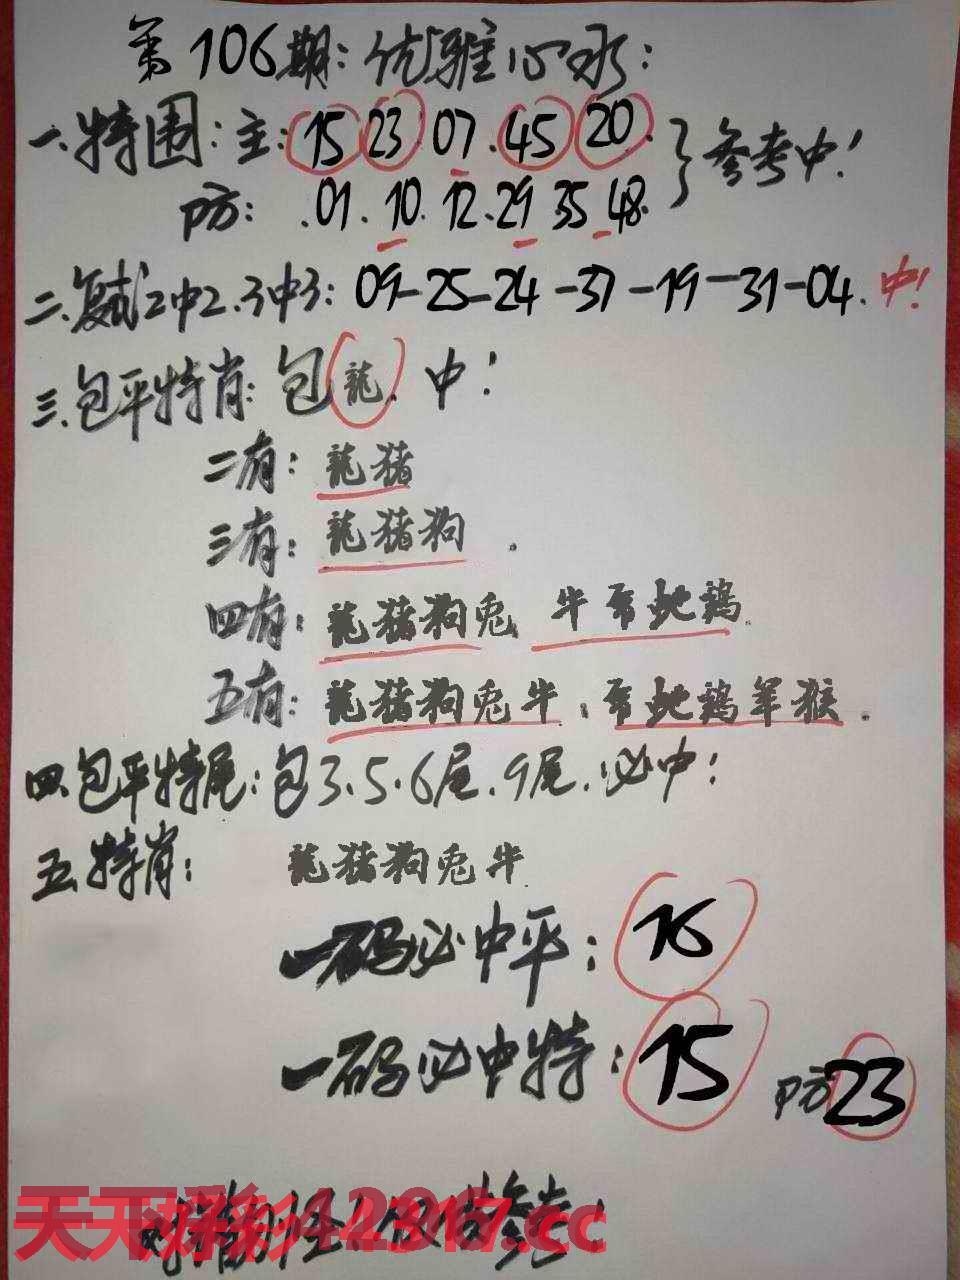 第106期:优雅心水:
一.特围:主:15 23 07.45 20.}参考中!
防:.01.10.12.29 35 48.
二.复试2中2.3中3:09-25-24-37-19-31-04.中!
三.包平特肖:包龍.中!
二有:龍猪
三有:龍猪狗.
四有:龍猪狗兎 牛 蛇鶏.
五有:龍猪狗兎牛: 蛇鶏羊猴.
四.包平特尾:包3.5.6尾.9尾.必中!
五.特肖: 龍猪狗兎牛
一码必中平:16
一码必中特:15 防23
仅供参考!
天天好彩 .cc